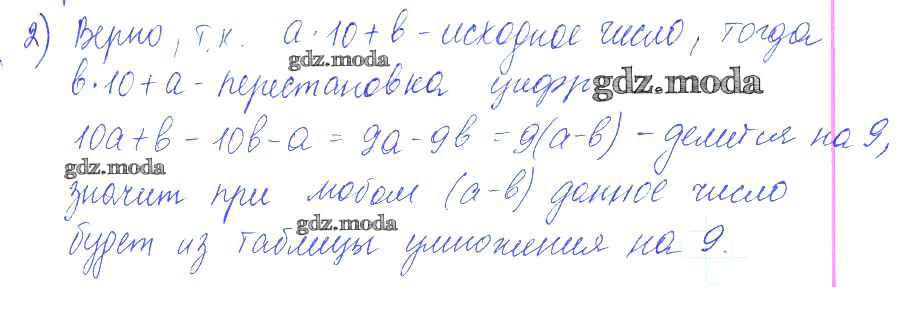 2) Верно, т.к. a·10+b - исходное число, тогда
gdz.moda
b·10+a - перестановка цифр
gdz.moda
10a+b-10b-a=9a-9b=9(a-b) - делится на 9,
gdz.moda
значит при любом (a-b) данное число
gdz.moda
будет из таблицы умножения на 9.